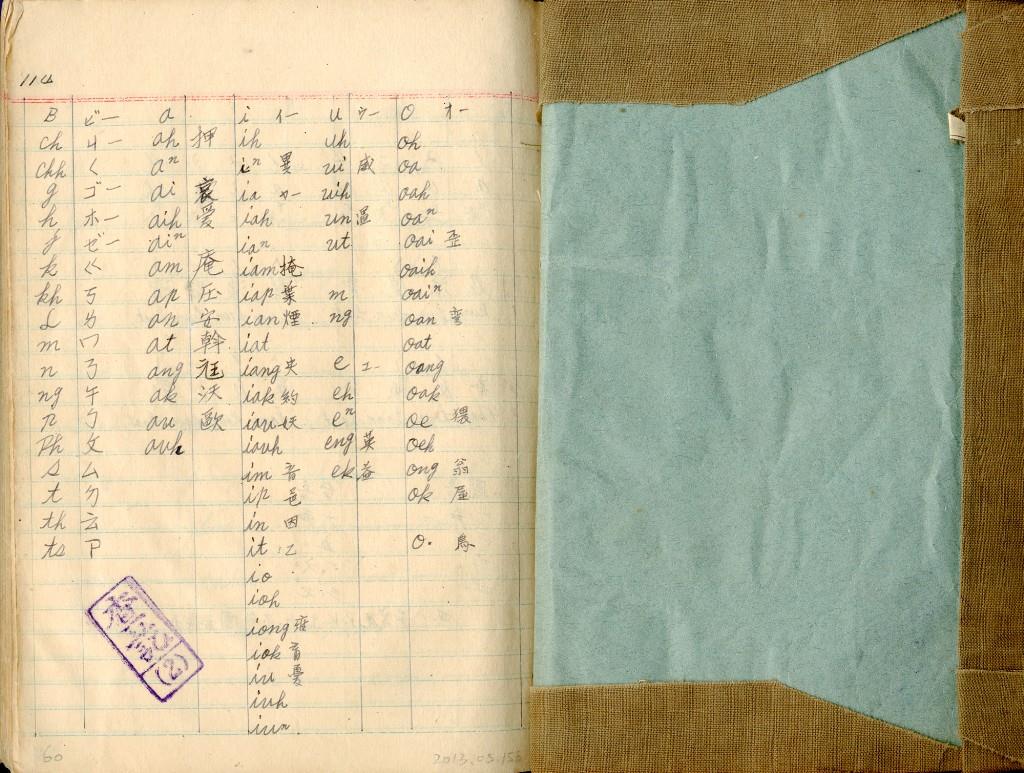 114
B ビー a i イー u ウー O オー
ch ㄐー ah 押 ih uh oh
chh く aⁿ iⁿ 異 ui 威 oa
g ゴー ai 哀 ia ヤー uih oah
h ホー aih 愛 iah un 温 oaⁿ
j ゼー aiⁿ iaⁿ ut oai 歪
k ㄍ am 庵 iam 掩 oaih
kh ㄎ ap 压 iap 葉 m oaiⁿ
L ㄌ an 安 ian 煙 ng oan 弯
m ㄇ at 斡 iat oat
n ㄋ ang 尪 iang 央 e エー oang
ng 午 ak 沃 iak 約 eh oak
P ㄅ au 歐 iau 妖 eⁿ oe 猥
Ph 文 auh iauh eng 英 oeh
s ム im 音 ek 益 ong 翁
t 勹 ip 邑 ok 屋
th 云 in 因
ts ㄗ it 乙 O· 烏
io
ioh
iong 雍
iok 育
iu 憂
iuh
iuⁿ
60